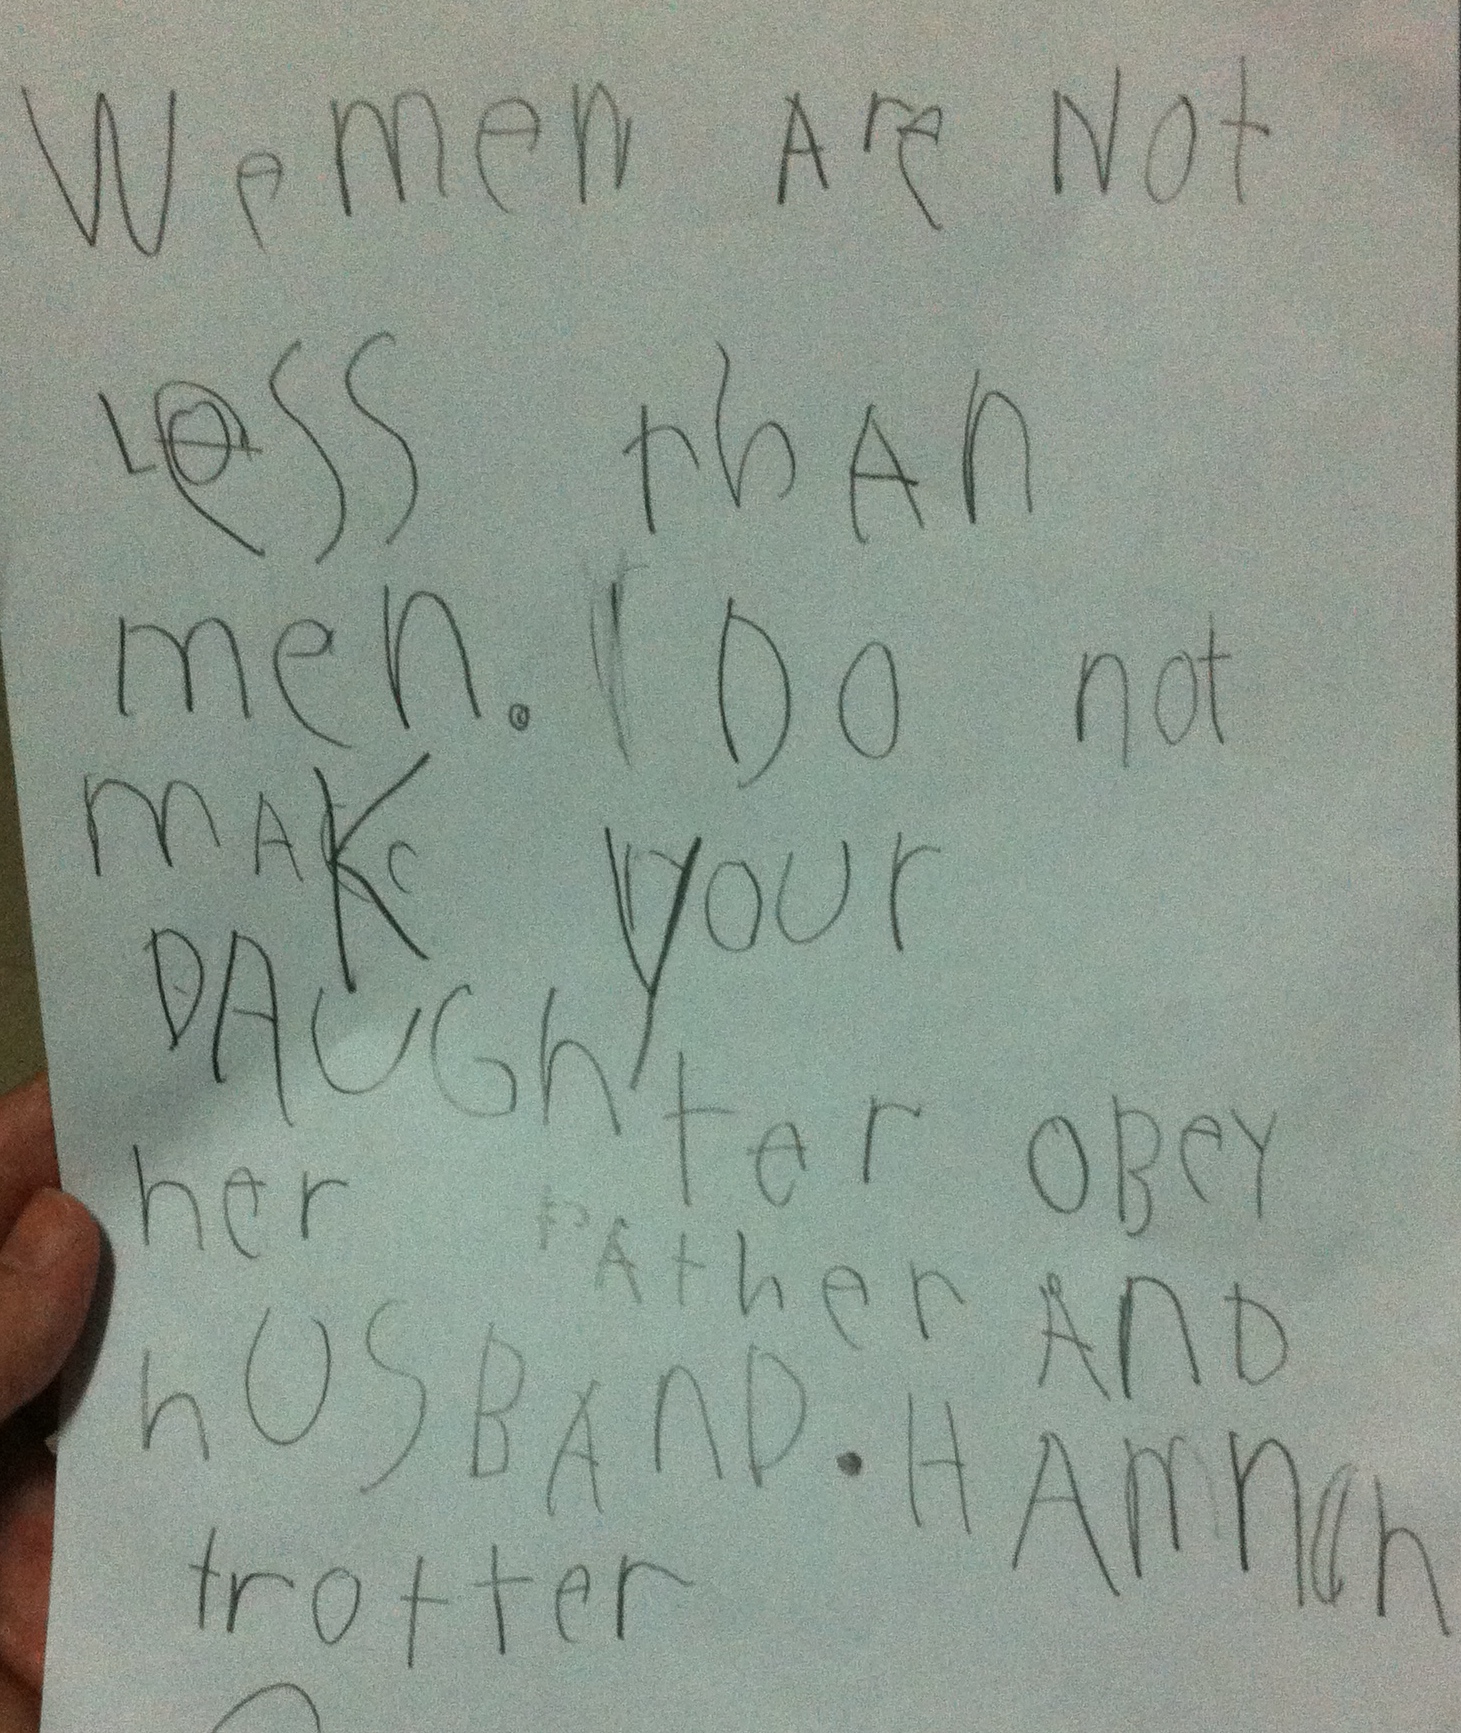 Wemen Are Not
Less than
men. I Do not
mAKe your
DAUGhter OBeY
her FAther AnD
hUSBAnD. HAmnah
trotter